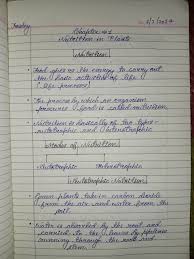 Sunday
2/7/2024
Chapter no 1
Nutrition in Plants
Nutrition
Food gives us the energy to carry out
the basic activities of life
(Life processes)
The process by which an organism
processes food is called nutrition.
Nutrition is basically of two types -
Autotrophic and Heterotrophic
Modes of Nutrition
Autotrophic Heterotrophic
Autotrophic Nutrition
Green plants take in carbon dioxide
from the air and water from the
soil.
Water is absorbed by the root and
carried to the leaves by pipeline
running through the root and
stem.